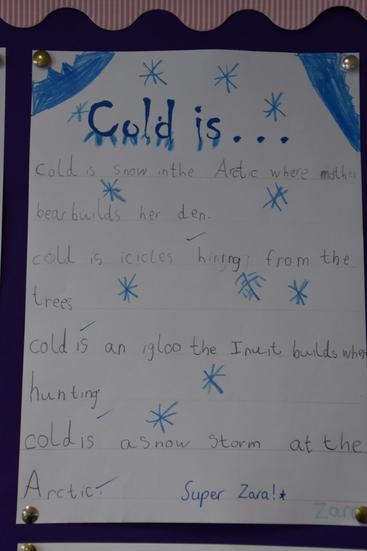 Cold is...
cold is snow inthe Arctic where mother
bear builds her den.
cold is icicles hinging from the
trees
cold is an igloo the Inuit builds when
hunting
cold is a snow storm at the
Arctic.
Super Zara!*
Zara